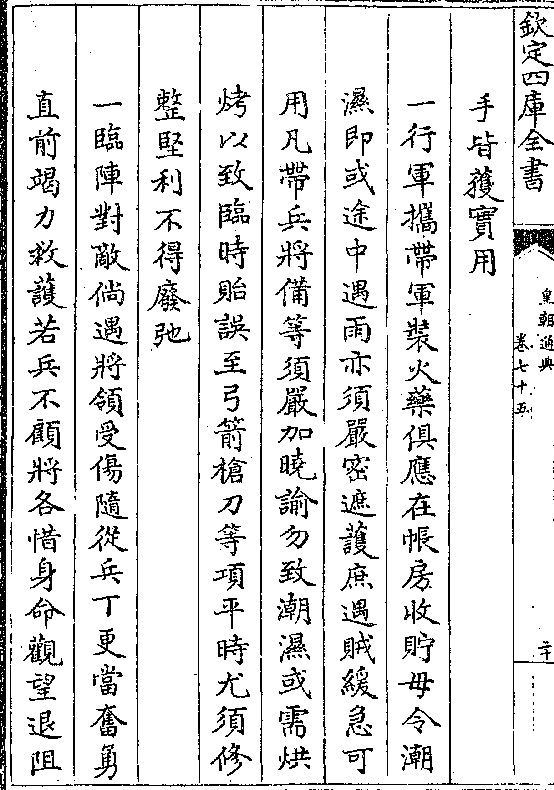 欽定四庫全書
皇朝通典
卷七十五
二十
手皆獲實用
一行軍攜帶軍裝火藥俱應在帳房收貯毋令潮
濕即或途中遇雨亦須嚴密遮護庶遇賊緩急可
用凡帶兵將備等須嚴加曉諭勿致潮濕或需烘
烤以致臨時貽誤至弓箭槍刀等項平時尤須修
整堅利不得廢弛
一臨陣對敵倘遇將領受傷隨從兵丁更當奮勇
直前竭力救護若兵不顧將各惜身命觀望退阻